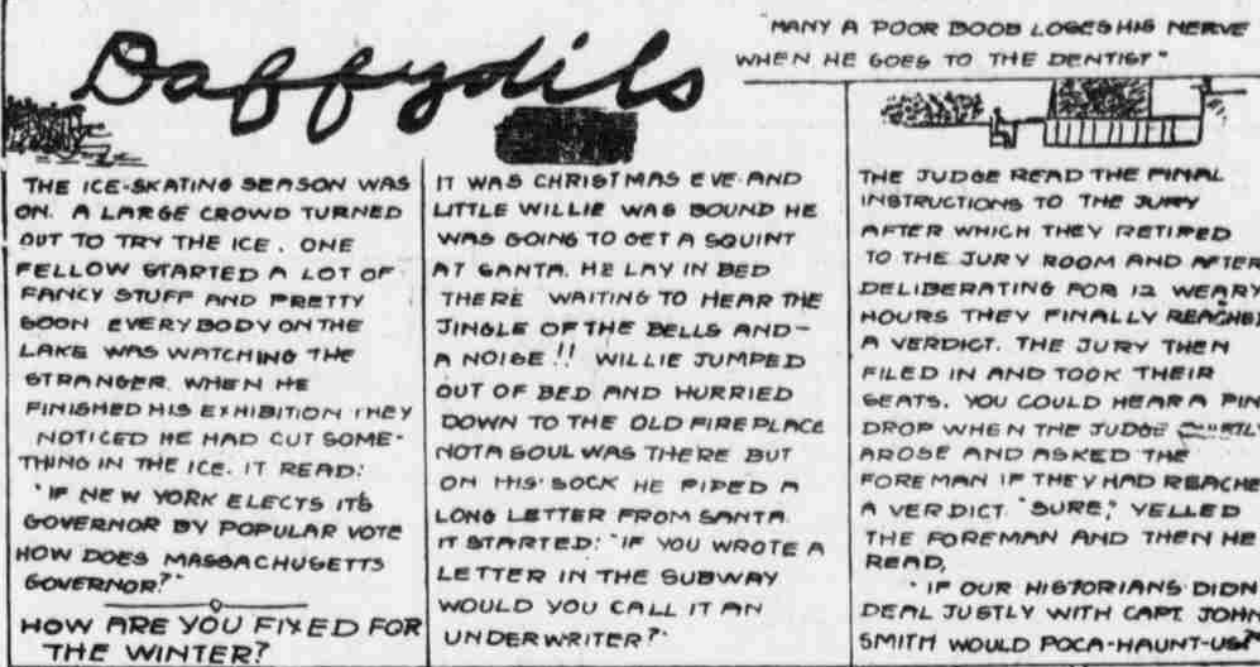 Daffydils
"MANY A POOR BOOB LOSES HIS NERVE
WHEN HE GOES TO THE DENTIST"
THE ICE-SKATING SEASON WAS
ON. A LARGE CROWD TURNED
OUT TO TRY THE ICE. ONE
FELLOW STARTED A LOT OF
FANCY STUFF AND PRETTY
SOON EVERYBODY ON THE
LAKE WAS WATCHING THE
STRANGER. WHEN HE
FINISHED HIS EXHIBITION THEY
NOTICED HE HAD CUT SOME-
THING IN THE ICE. IT READ:
"IF NEW YORK ELECTS ITS
GOVERNOR BY POPULAR VOTE
HOW DOES MASSACHUSETTS
GOVERNOR?"
HOW ARE YOU FIXED FOR
THE WINTER?
IT WAS CHRISTMAS EVE AND
LITTLE WILLIE WAS BOUND HE
WAS GOING TO GET A SQUINT
AT SANTA. HE LAY IN BED
THERE WAITING TO HEAR THE
JINGLE OF THE BELLS AND-
A NOISE!! WILLIE JUMPED
OUT OF BED AND HURRIED
DOWN TO THE OLD FIREPLACE
NOT A SOUL WAS THERE BUT
ON HIS SOCK HE PIPED A
LONG LETTER FROM SANTA.
IT STARTED: "IF YOU WROTE A
LETTER IN THE SUBWAY
WOULD YOU CALL IT AN
UNDERWRITER?"
THE JUDGE READ THE FINAL
INSTRUCTIONS TO THE JURY
AFTER WHICH THEY RETIRED
TO THE JURY ROOM AND AFTER
DELIBERATING FOR 12 WEARY
HOURS THEY FINALLY REACHED
A VERDICT. THE JURY THEN
FILED IN AND TOOK THEIR
SEATS. YOU COULD HEAR A PIN
DROP WHEN THE JUDGE
AROSE AND ASKED THE
FOREMAN IF THEY HAD REACHE
A VERDICT. "SURE," YELLED
THE FOREMAN AND THEN HE
READ,
"IF OUR HISTORIANS DIDN
DEAL JUSTLY WITH CAPT. JOHN
SMITH WOULD POCA-HAUNT-US?"